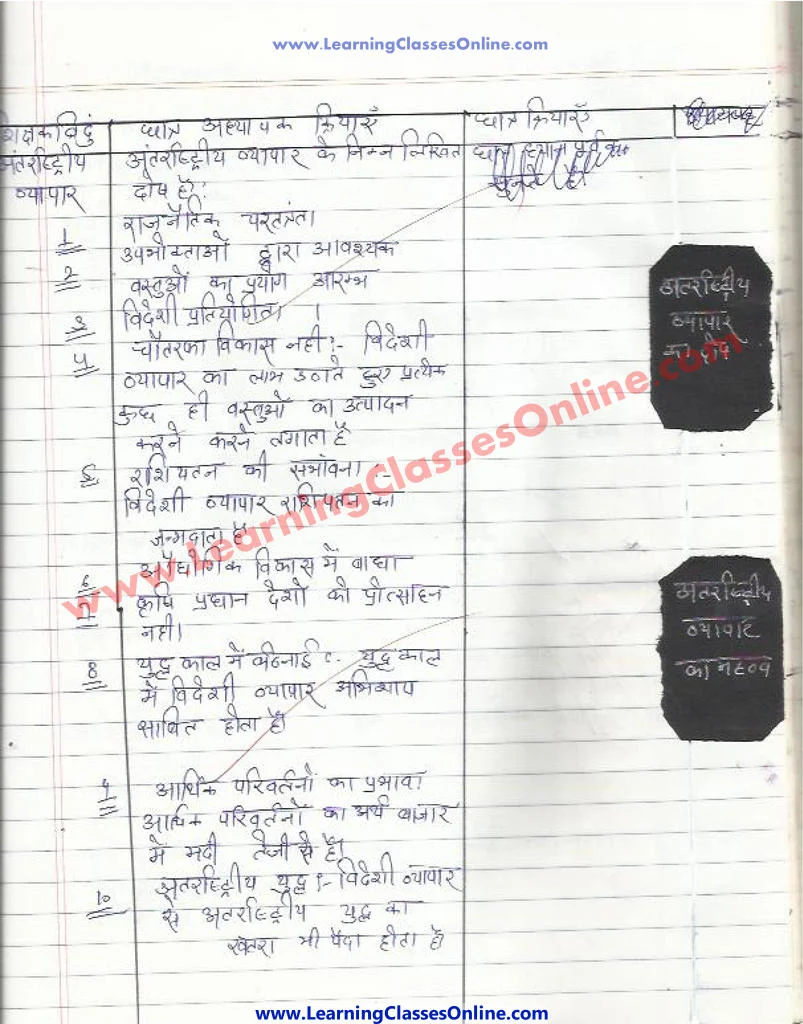 www.LearningClassesOnline.com
शिक्षक विदुं छात्र अध्यापक क्रियाएँ छात्र क्रियाएँ
अंतर्राष्ट्रीय अंतर्राष्ट्रीय व्यापार के निम्न लिखित छात्र ध्यान पूर्वक
व्यापार दोष है?: सुनते है।
1 राजनैतिक परतत्रंता।
2 उपभोक्ताओं द्वारा आवश्यक
वस्तुओं का प्रयोग आरम्भ
3 विदेशी प्रतियोगिता ।
4 चौतरफा विकास नही:- विदेशी
व्यापार का लाभ उठाते हुए प्रत्येक
कुछ ही वस्तुओं का उत्पादन
करने करने लगाता है
5 राशिपतन की सभांवना :-
विदेशी व्यापार राशिपतन का
जन्मदाता है
6 औधोगिक विकास में बाधा
7 कृषि प्रधान देशो को प्रोत्साहन
नही।
8 युद्ध काल में कठनाई :- युद्ध काल
में विदेशी व्यापार अभिशाप
साबित होता है।
9 आर्थिक परिवर्तनों का प्रभाव।
आर्थिक परिवर्तनों का अर्थ बाजार
में मदी तेजी से है।
10 अतंर्राष्ट्रीय युद्ध :- विदेशी व्यापार
से अतंर्राष्ट्रीय युद्ध का
खतरा भी पैदा होता है।
अतंर्राष्ट्रीय
व्यापार
का दोष
अतंर्राष्ट्रीय
व्यापार
का महत्व
www.LearningClassesOnline.com
www.LearningClassesOnline.com